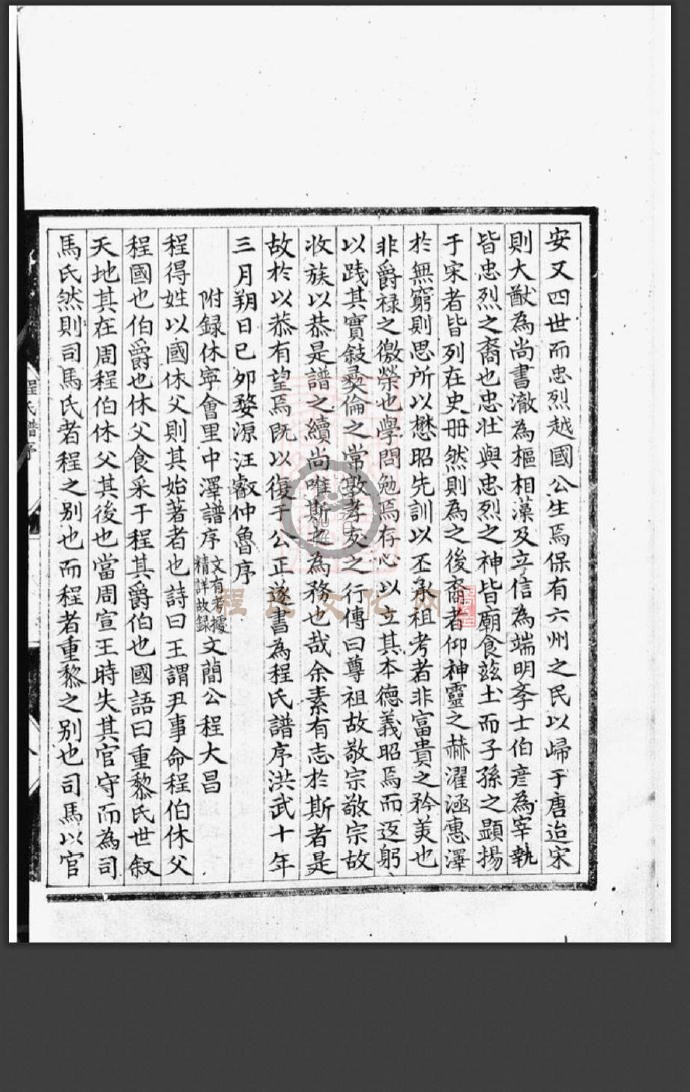 安又四世而忠烈越國公生焉保有六州之民以歸于唐迨宋
則大猷為尚書澈為樞相藻及立信為端明李士伯彥為宰執
皆忠烈之裔也忠壯與忠烈之神皆廟食茲土而子孫之顯揚
于宋者皆列在史册然則為之後裔者仰神靈之赫濯涵惠澤
於無窮則思所以懋昭先訓以丕承祖考者非富貴之矜美也
非爵祿之徼榮也學問勉焉存心以立其本德義昭焉而迈躬
以踐其實敍彝倫之常敦孝友之行傳曰尊祖故敬宗敬宗故
收族以恭是譜之續尚唯斯之為務也哉余素有志於斯者是
故於以恭有望焉既以復于公正遂書為程氏譜序洪武十年
三月朔日己夘婺源汪叡仲魯序
附録休寧會里中澤譜序文有考據精詳故録文簡公程大昌
程得姓以國休父則其始著者也詩曰王謂尹事命程伯休父
程國也伯爵也休父食采于程其爵伯也國語曰重黎氏世叙
天地其在周程伯休父其後也當周宣王時失其官守而為司
馬氏然則司馬氏者程之别也而程者重黎之别也司馬以官
程氏譜序
程氏文化网